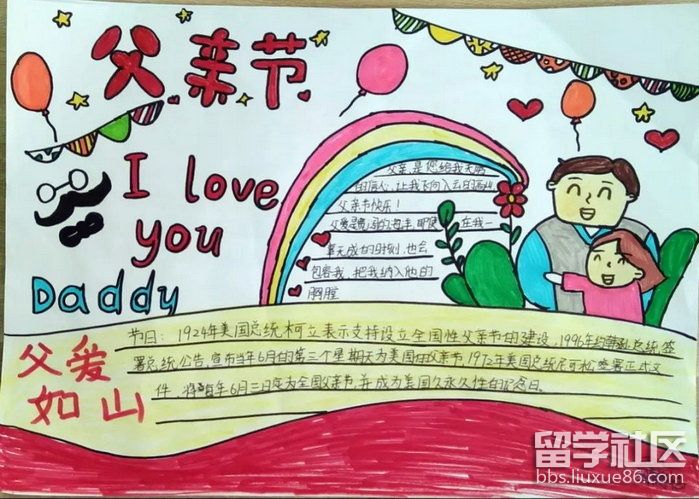 父亲节
I love
you
Daddy
父亲,是您给我无穷
的信心,让我飞向
父亲节快乐!
父爱是 的海洋,即使 在我一
事无成的时刻,也会
包容我,把我纳入他的
胸膛
父爱
如山
节日:1924年美国总统柯立表示支持设立全国性父亲节的建设,1996年约翰逊总统签
署总统公告,宣布当年6月的第三个星期天为美国的父亲节,1972年美国总统尼可松签署正式文
件,将每年6月三日定为全国父亲节,并成为美国久永久性的纪念日。
留学社区
bbs.liuxue86.com